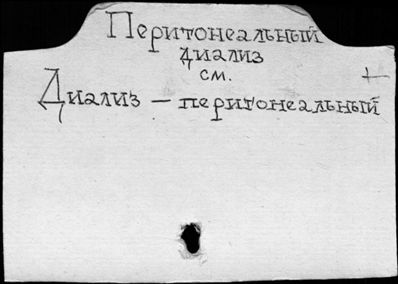 Перитонеальный
диализ
см. +
Диализ — перитонеальный